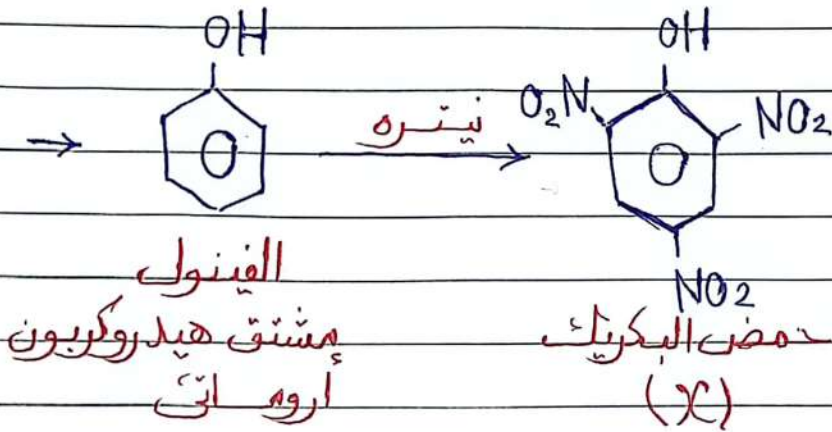 OH
OH
O₂N
NO₂
نيتره
NO₂
الفينول
مشتق هيدروكربون
أروماتى
حمض البكريك
(X)